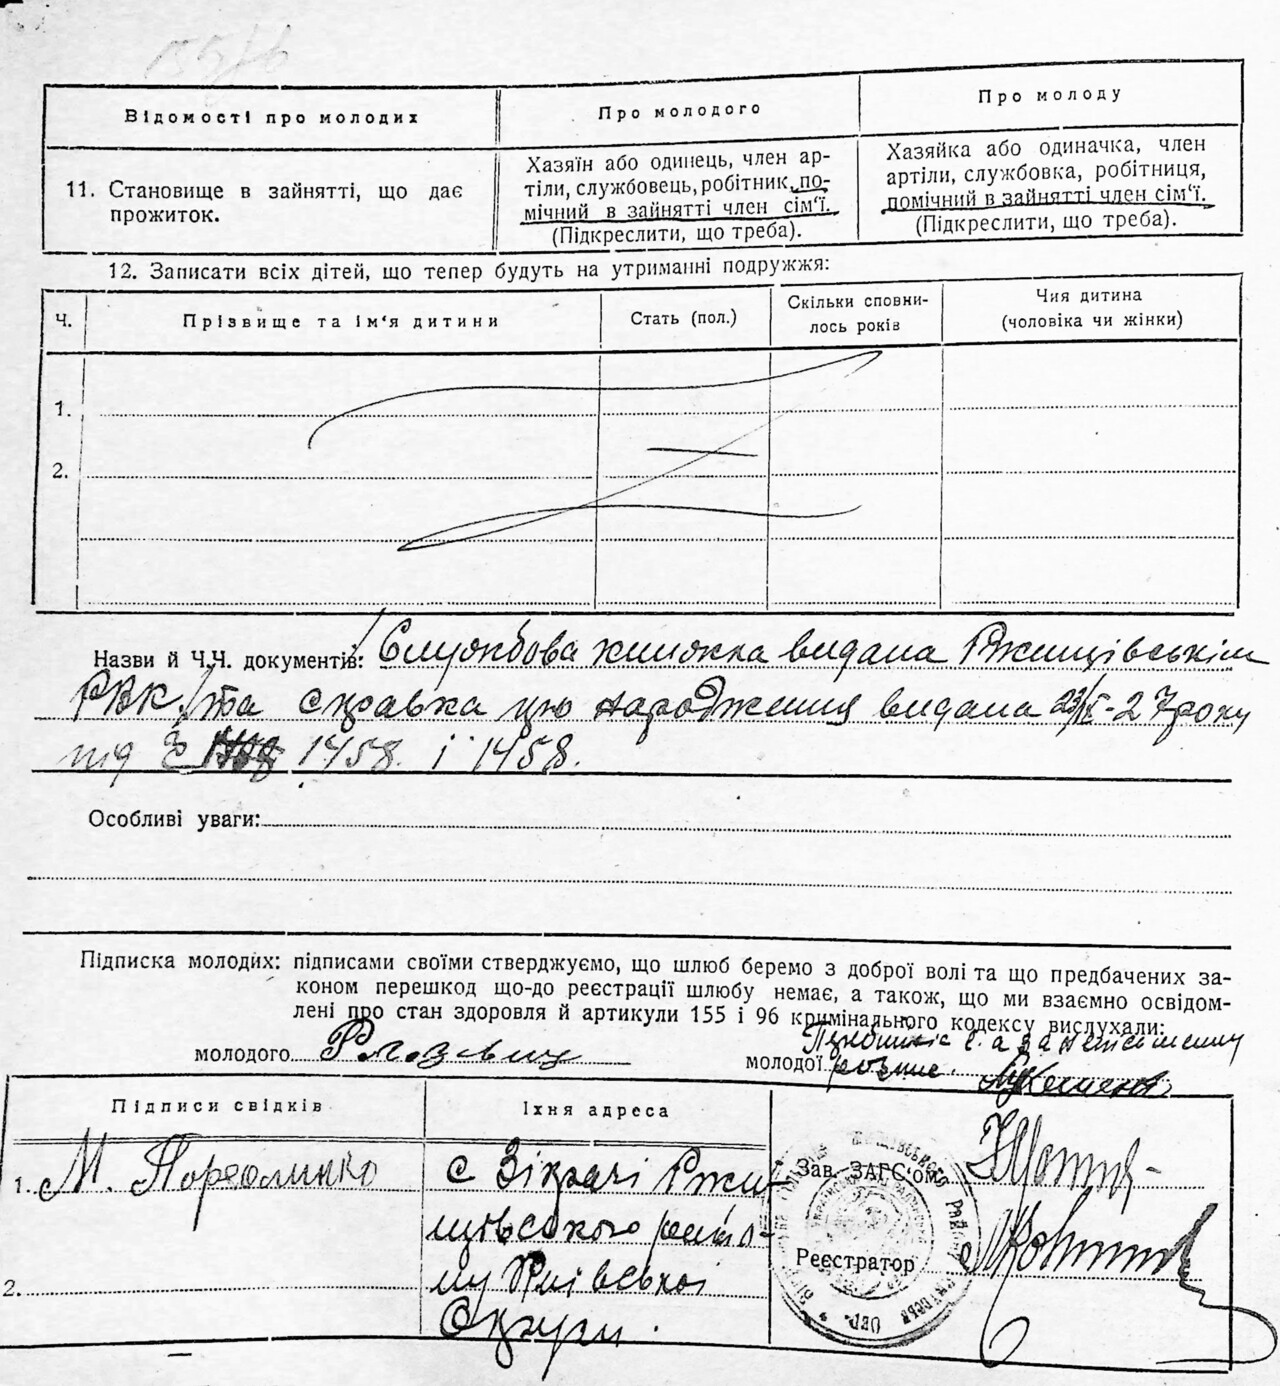 Відомості про молодих
Про молодого
Про молоду
11. Становище в зайнятті, що дає
прожиток.
Хазяїн або одинець, член ар-
тіли, службовець, робітник, по-
мічний в зайнятті член сім'ї.
(Підкреслити, що треба).
Хазяйка або одиначка, член
артіли, службовка, робітниця,
помічний в зайнятті член сім'ї.
(Підкреслити, що треба).
12. Записати всіх дітей, що тепер будуть на утриманні подружжя:
Ч.
Прізвище та ім'я дитини
Стать (пол.)
Скільки сповни-
лось років
Чия дитина
(чоловіка чи жінки)
1.
2.
Назви й Ч.Ч. документів: Службова книжка видана Ржищівським
РВК. та справка про народження видана -27 року
під 1458. і 1458.
Особливі уваги:
Підписка молодих: підписами своїми стверджуємо, що шлюб беремо з доброї волі та що предбачених за-
коном перешкод що-до реєстрації шлюбу немає, а також, що ми взаємно освідом-
лені про стан здоровля й артикули 155 і 96 кримінального кодексу вислухали:
молодого
молодої
Підписи свідків
Їхня адреса
1. М.
с Зікрачі Ржи-
щівського райо-
ну Київської
Округи.
2.
Зав. ЗАГС'ом
Реєстратор